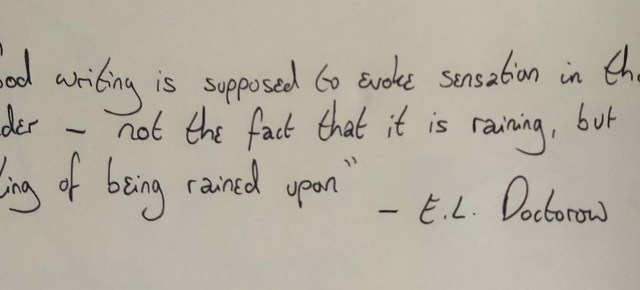 ood writing is supposed to evoke sensation in the
der – not the fact that it is raining, but
ling of being rained upon"
– E.L. Doctorow